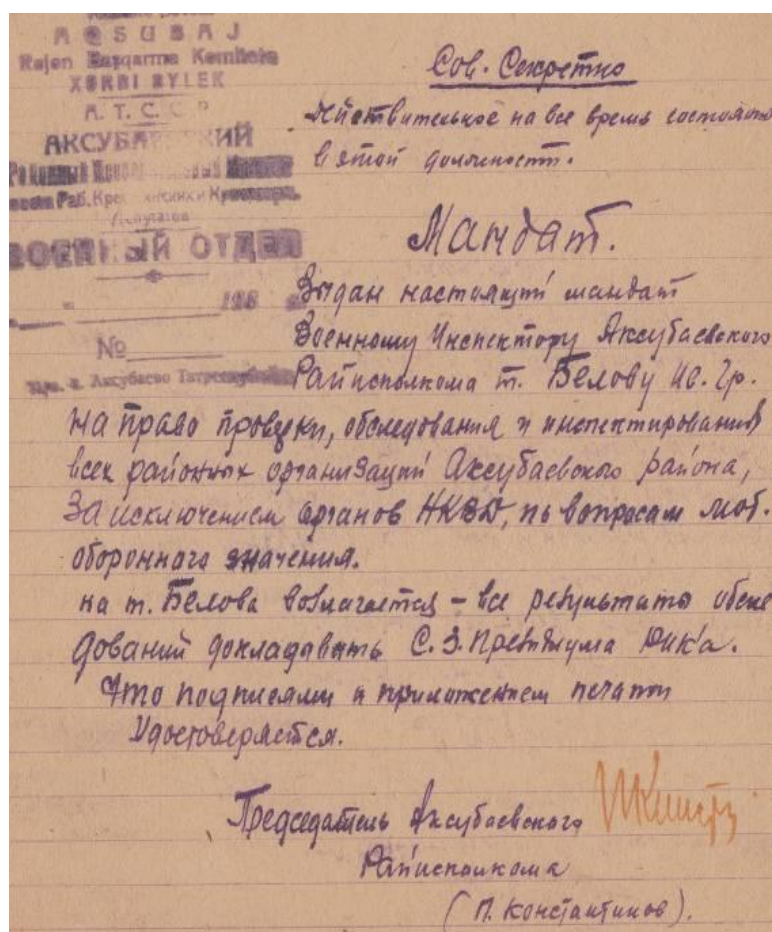 AQSUBAJ
Rajon Başqarma Komiteto
XƏRBI BYLEK
A. T. C. C. P
АКСУБАЕВСКИЙ
Районный
Раб. Крестьянских и
Депутатов
ВОЕННЫЙ ОТДЕЛ
193 г.
№
Аксубаево
Сов. Секретно
Действительное на все время состояния
в этой должности.
Мандат.
Выдан настоящий мандат
Военному Инспектору Аксубаевского
Райисполкома т. Белову Ив. Гр.
на право проверки, обследования и инспектирования
всех районных организаций Аксубаевского района,
За исключением органов НКВД, по вопросам моб.
оборонного значения.
на т. Белова возлагается – все результаты обсле
дований докладывать С. З. Президиума РИК'а.
Что подписями и приложением печати
Удостоверяется.
Председатель Аксубаевского
Райисполкома
(П. Константинов).